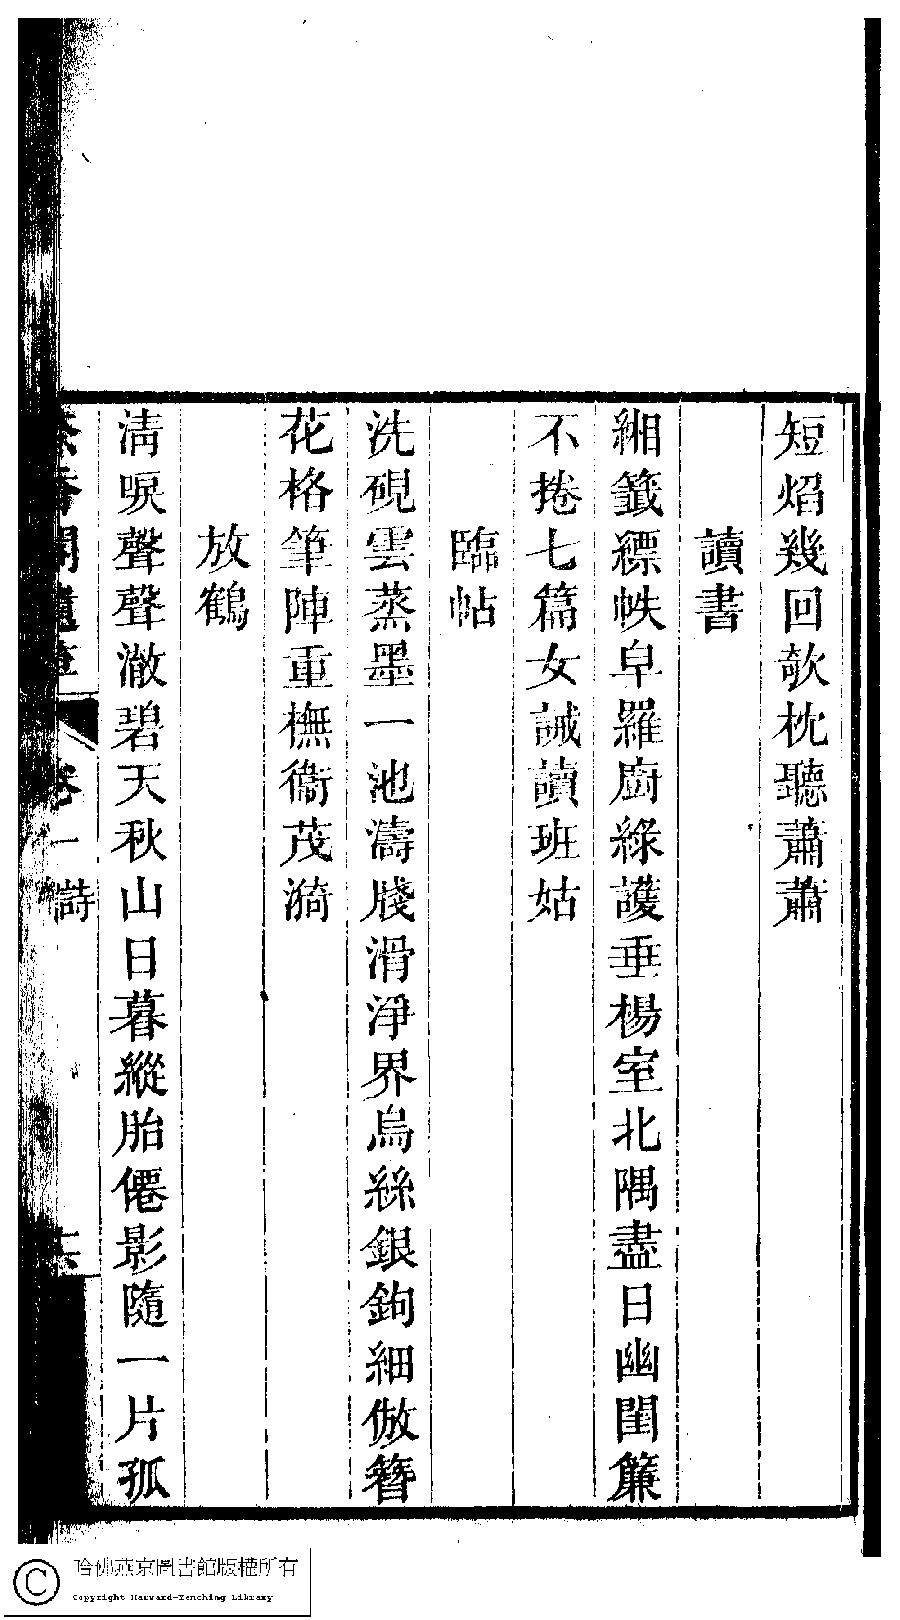 短焰幾回欹枕聽蕭蕭
讀書
緗籤縹帙皁羅廚綠護垂楊室北隅盡日幽閨簾
不捲七篇女誡讀班姑
臨帖
洗硯雲蒸墨一池濤牋滑淨界烏絲銀鉤細倣簪
花格筆陣重橅衞茂漪
放鶴
淸唳聲聲澈碧天秋山日暮縱胎僊影隨一片孤
香閣遺 卷一 詩
哈佛燕京圖書館版權所有
Copyright Harvard-Yenching Library